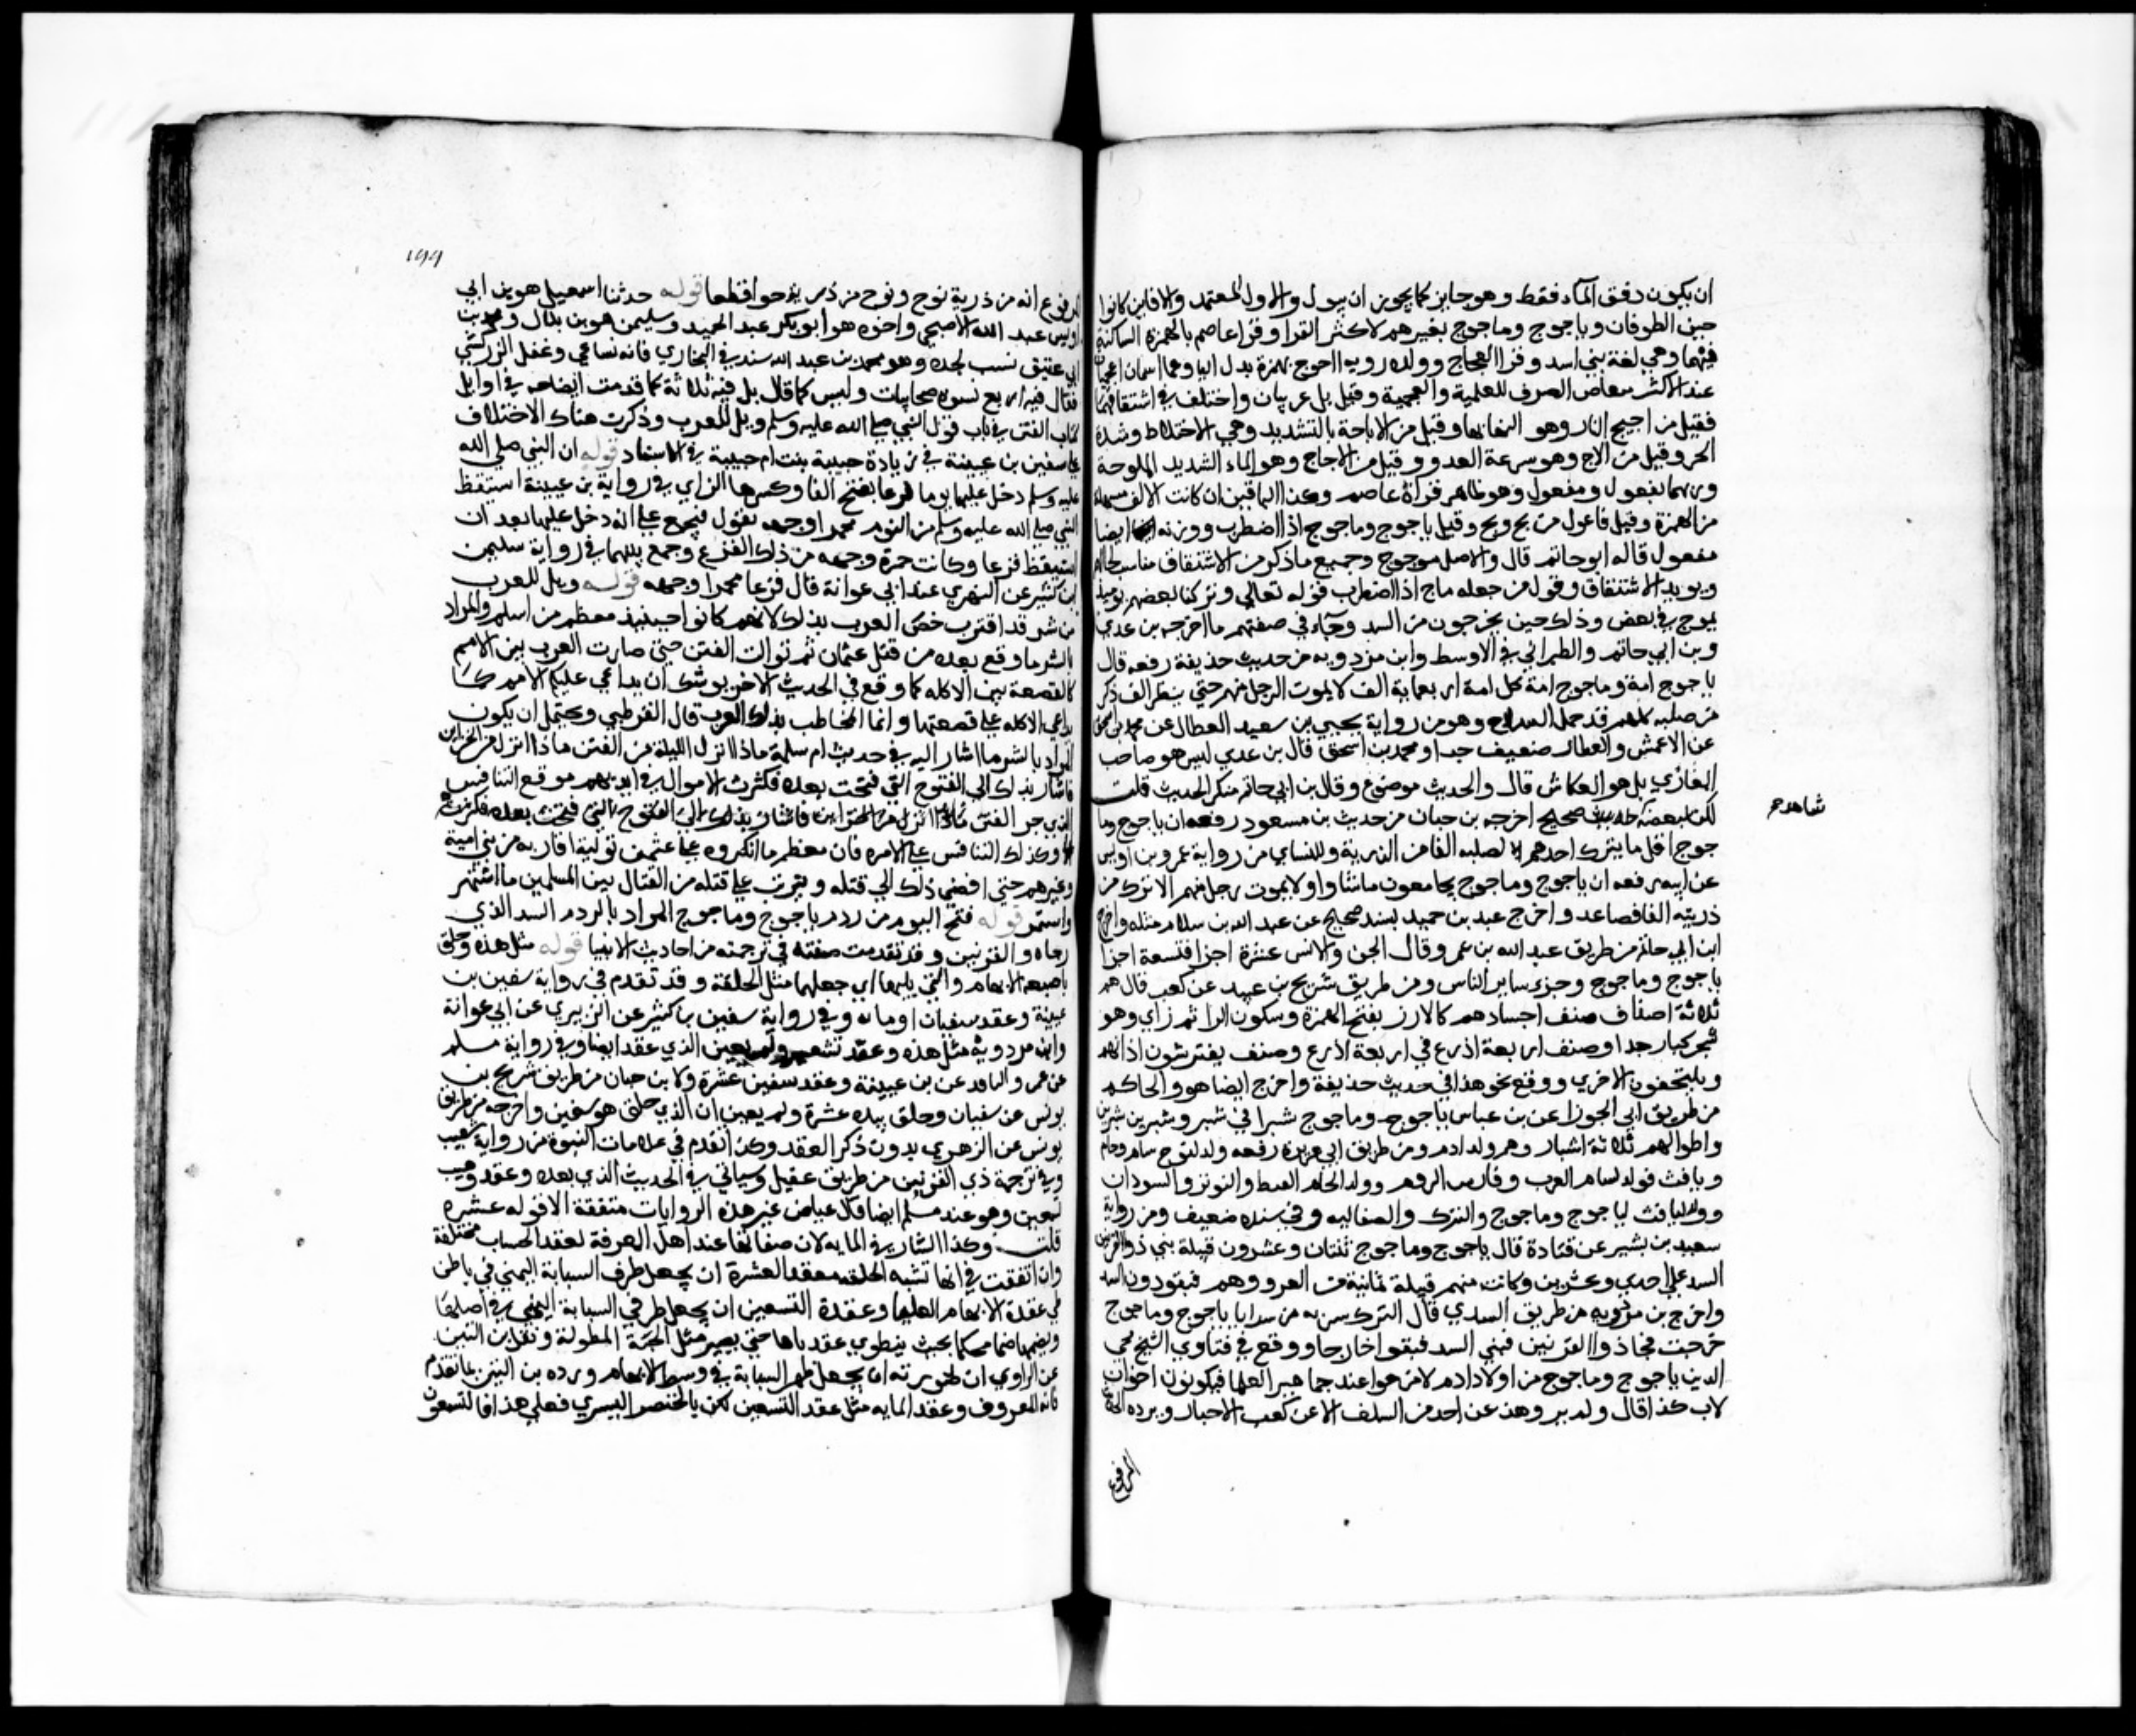 ان يكون دفق الماء فقط وهو جايز كما يجوز ان يبول والاول المعتمد والا فاين كانوا
حين الطوفان وياجوج وماجوج بغير همز لاكثر القرا وقرا عاصم بالهمزة الساكنة
فيهما وهي لغة بني اسد وقرا العجاج وولده روبه ااجوج بهمزة بدل اليا وهما اسمان اعجميان
عند الاكثر منعا من الصرف للعلمية والعجمية وقيل بل عربيان واختلف في اشتقاقهما
فقيل من اجيج النار وهو التهابها وقيل من الاجة بالتشديد وهي الاختلاط وشدة
الحر وقيل من الاج وهو سرعة العدو وقيل من الاجاج وهو الماء الشديد الملوحة
وزنهما يفعول ومفعول وهو ظاهر قراة عاصم وكذا الباقين ان كانت الالف مسهلة
من الهمزة وقيل فاعول من يج ومج وقيل ياجوج وماجوج اذا اضطرب ووزنه ايضا
مفعول قاله ابو حاتم قال والاصل موجوج وجميع ما ذكر من الاشتقاق مناسب لحالهم
ويويد الاشتقاق وقول من جعله ماج اذا اضطرب قوله تعالي وتركنا بعضهم يوميذ
يموج في بعض وذلك حين يخرجون من السد وجاء في صفتهم ما اخرجه بن عدي
وبن ابي حاتم والطبراني في الاوسط وابن مردويه من حديث حذيفة رفعه قال
ياجوج امة وماجوج امة كل امة اربعماية الف لا يموت الرجل منهم حتي ينظر الف ذكر
من صلبه كلهم قد حمل السلاح وهو من رواية يحيي بن سعيد العطار عن محمد بن اسحق
عن الاعمش والعطار ضعيف جدا ومحمد بن اسحق قال بن عدي ليس هو صاحب
المغازي بل هو العكاشي قال والحديث موضوع وقال بن ابي حاتم منكر الحديث قلت
لكن لبعضه شاهد صحيح اخرجه بن حبان من حديث بن مسعود رفعه ان ياجوج وما
شاهد صح
جوج اقل ما يترك احدهم لصلبه الفا من الذرية وللنساي من رواية عمرو بن اوس
عن ابيه رفعه ان ياجوج وماجوج يجامعون ما شاوا ولا يموت رجل منهم الا ترك من
ذريته الفا فصاعدا واخرج عبد بن حميد بسند صحيح عن عبد الله بن سلام مثله واخرج
ابن ابي حاتم من طريق عبد الله بن عمرو قال الجن والانس عشرة اجزا فتسعة اجزا
ياجوج وماجوج وجزء ساير الناس ومن طريق شريح بن عبيد عن كعب قال هم
ثلاثة اصناف صنف اجسادهم كالارز بفتح الهمزة وسكون الرا ثم زاي وهو
شجر كبار جدا وصنف اربعة اذرع في اربعة اذرع وصنف يفترشون اذانهم
ويلتحفون الاخري ووقع نحو هذا في حديث حذيفة واخرج ايضا هو والحاكم
من طريق ابي الجوزا عن بن عباس ياجوج وماجوج شبرا في شبر وشبرين شبرين
واطولهم ثلاثة اشبار وهم ولد ادم ومن طريق ابي هريرة رفعه ولد لنوح سام وحام
ويافث فولد لسام العرب وفارس والروم وولد لحام القبط والبربر والسودان
وولد ليافث ياجوج وماجوج والترك والصقالبه وفي سنده ضعيف ومن رواية
سعيد بن بشير عن قتادة قال ياجوج وماجوج ثنتان وعشرون قبيلة بني ذو القرنين
السد علي احدي وعشرين وكانت منهم قبيلة غايبة في الغزو وهم فبقوا دون السد
واخرج بن مردويه من طريق السدي قال الترك سريه من سرايا ياجوج وماجوج
خرجت فجا ذوا القرنين فبني السد فبقوا خارجا ووقع في فتاوي الشيخ محي
الدين ياجوج وماجوج من اولاد ادم لا من حوا عند جماهير العلما فيكونون اخوان
لاب كذا قال ولم ير هذا عن احد من السلف الا عن كعب الاحبار ويرده الحديث
المرفوع
١٩٩
المرفوع انه من ذرية نوح ونوح من ذرية حوا قطعا قوله حدثنا اسمعيل هو بن ابي
اويس عبد الله الاصبحي واخوه هو ابو بكر عبد الحميد وسليمن هو بن بلال ومحمد بن
ابي عتيق نسب لجده وهو محمد بن عبد الله سند في البخاري فانه تساعي وغفل الزركشي
فقال فيه اربع نسوة صحابيات وليس كما قال بل فيه ثلاثة كما قدمت ايضاحه في اوايل
كتاب الفتن في باب قول النبي صلي الله عليه وسلم ويل للعرب وذكرت هناك الاختلاف
علي سفين بن عيينة في زيادة حبيبة بنت ام حبيبة في الاسناد قوله ان النبي صلي الله
عليه وسلم دخل عليها يوما فزعا بفتح الفا وكسرها الزاي في رواية بن عيينة استيقظ
النبي صلي الله عليه وسلم من النوم محمرا وجهه يقول فيجمع علي انه دخل عليها بعد ان
استيقظ فزعا وكانت حمرة وجهه من ذلك الفزع وجمع بينهما في رواية سليمن
بن كثير عن الزهري عند ابي عوانة قال فزعا محمرا وجهه قوله ويل للعرب
من شر قد اقترب خص العرب بذلك لانهم كانوا حينيذ معظم من اسلم والمراد
بالشر ما وقع بعده من قتل عثمان ثم توالت الفتن حتي صارت العرب بين الامم
كالقصعة بين الاكلة كما وقع في الحديث الاخر يوشك ان تداعي عليكم الامم كما
تداعي الاكلة علي قصعتها وانما المخاطب بذلك العرب قال القرطبي ويحتمل ان يكون
المراد بالشر ما اشار اليه في حديث ام سلمة ماذا انزل الليلة من الفتن ماذا انزل من الخزاين
فاشار بذلك الي الفتوح التي فتحت بعده فكثرت الاموال في ايديهم فوقع التنافس
الذي جر الفتن ماذا انزل من الخزاين فاشار بذلك الي الفتوح التي فتحت بعده فكثرت
وكذلك التنافس علي الامره فان معظم ما انكروه علي عثمن تولية اقاربه من بني امية
وغيرهم حتي افضي ذلك الي قتله وترتب علي قتله من القتال بين المسلمين ما اشتهر
واستمر قوله فتح اليوم من ردم ياجوج وماجوج المراد بالردم السد الذي
بناه ذو القرنين وقد تقدمت صفته في ترجمته من احاديث الانبيا قوله مثل هذه وحلق
باصبعه الابهام والتي يليها اي جعلهما مثل الحلقة وقد تقدم في رواية سفين بن
عيينة وعقد سفيان او مايه وفي رواية سفين بن كثير عن الزهري عن ابي عوانة
وابن مردويه مثل هذه وعقد تسعين ولم يعين الذي عقد ايضا وفي رواية مسلم
عن عمرو الناقد عن بن عيينة وعقد سفين عشرة ولابن حبان من طريق شريح بن
يونس عن سفيان وحلق بيده عشرة ولم يعين ان الذي حلق هو سفين واخرجه من طريق
يونس عن الزهري بدون ذكر العقد وكذا تقدم في علامات النبوة من رواية شعيب
وفي ترجمة ذي القرنين من طريق عقيل وسياتي في الحديث الذي بعده وعقد وهيب
تسعين وهو عند مسلم ايضا قال عياض غير هذه الروايات متفقة الا قوله عشره
قلت وكذا الشك في المايه لان صفاتها عند اهل المعرفة لعقد الحساب مختلفة
وان اتفقت في انها تشبه الحلقه فعقد العشرة ان يجعل طرف السبابة اليمني في باطن
طي عقدة الابهام العليا وعقدة التسعين ان يجعل طرف السبابة اليمني في اصلها
ويضمها ضما محكما بحيث ينطوي عقدتاها حتي يصير مثل الحية المطوقة ونقل بن التين
عن الراوي ان صورته ان يجعل طهر السبابة في وسط الابهام ورده بن التين بما تقدم
فانه المعروف وعقد المايه مثل عقد التسعين لكن بالخنصر اليسري فعلي هذا فالتسعون